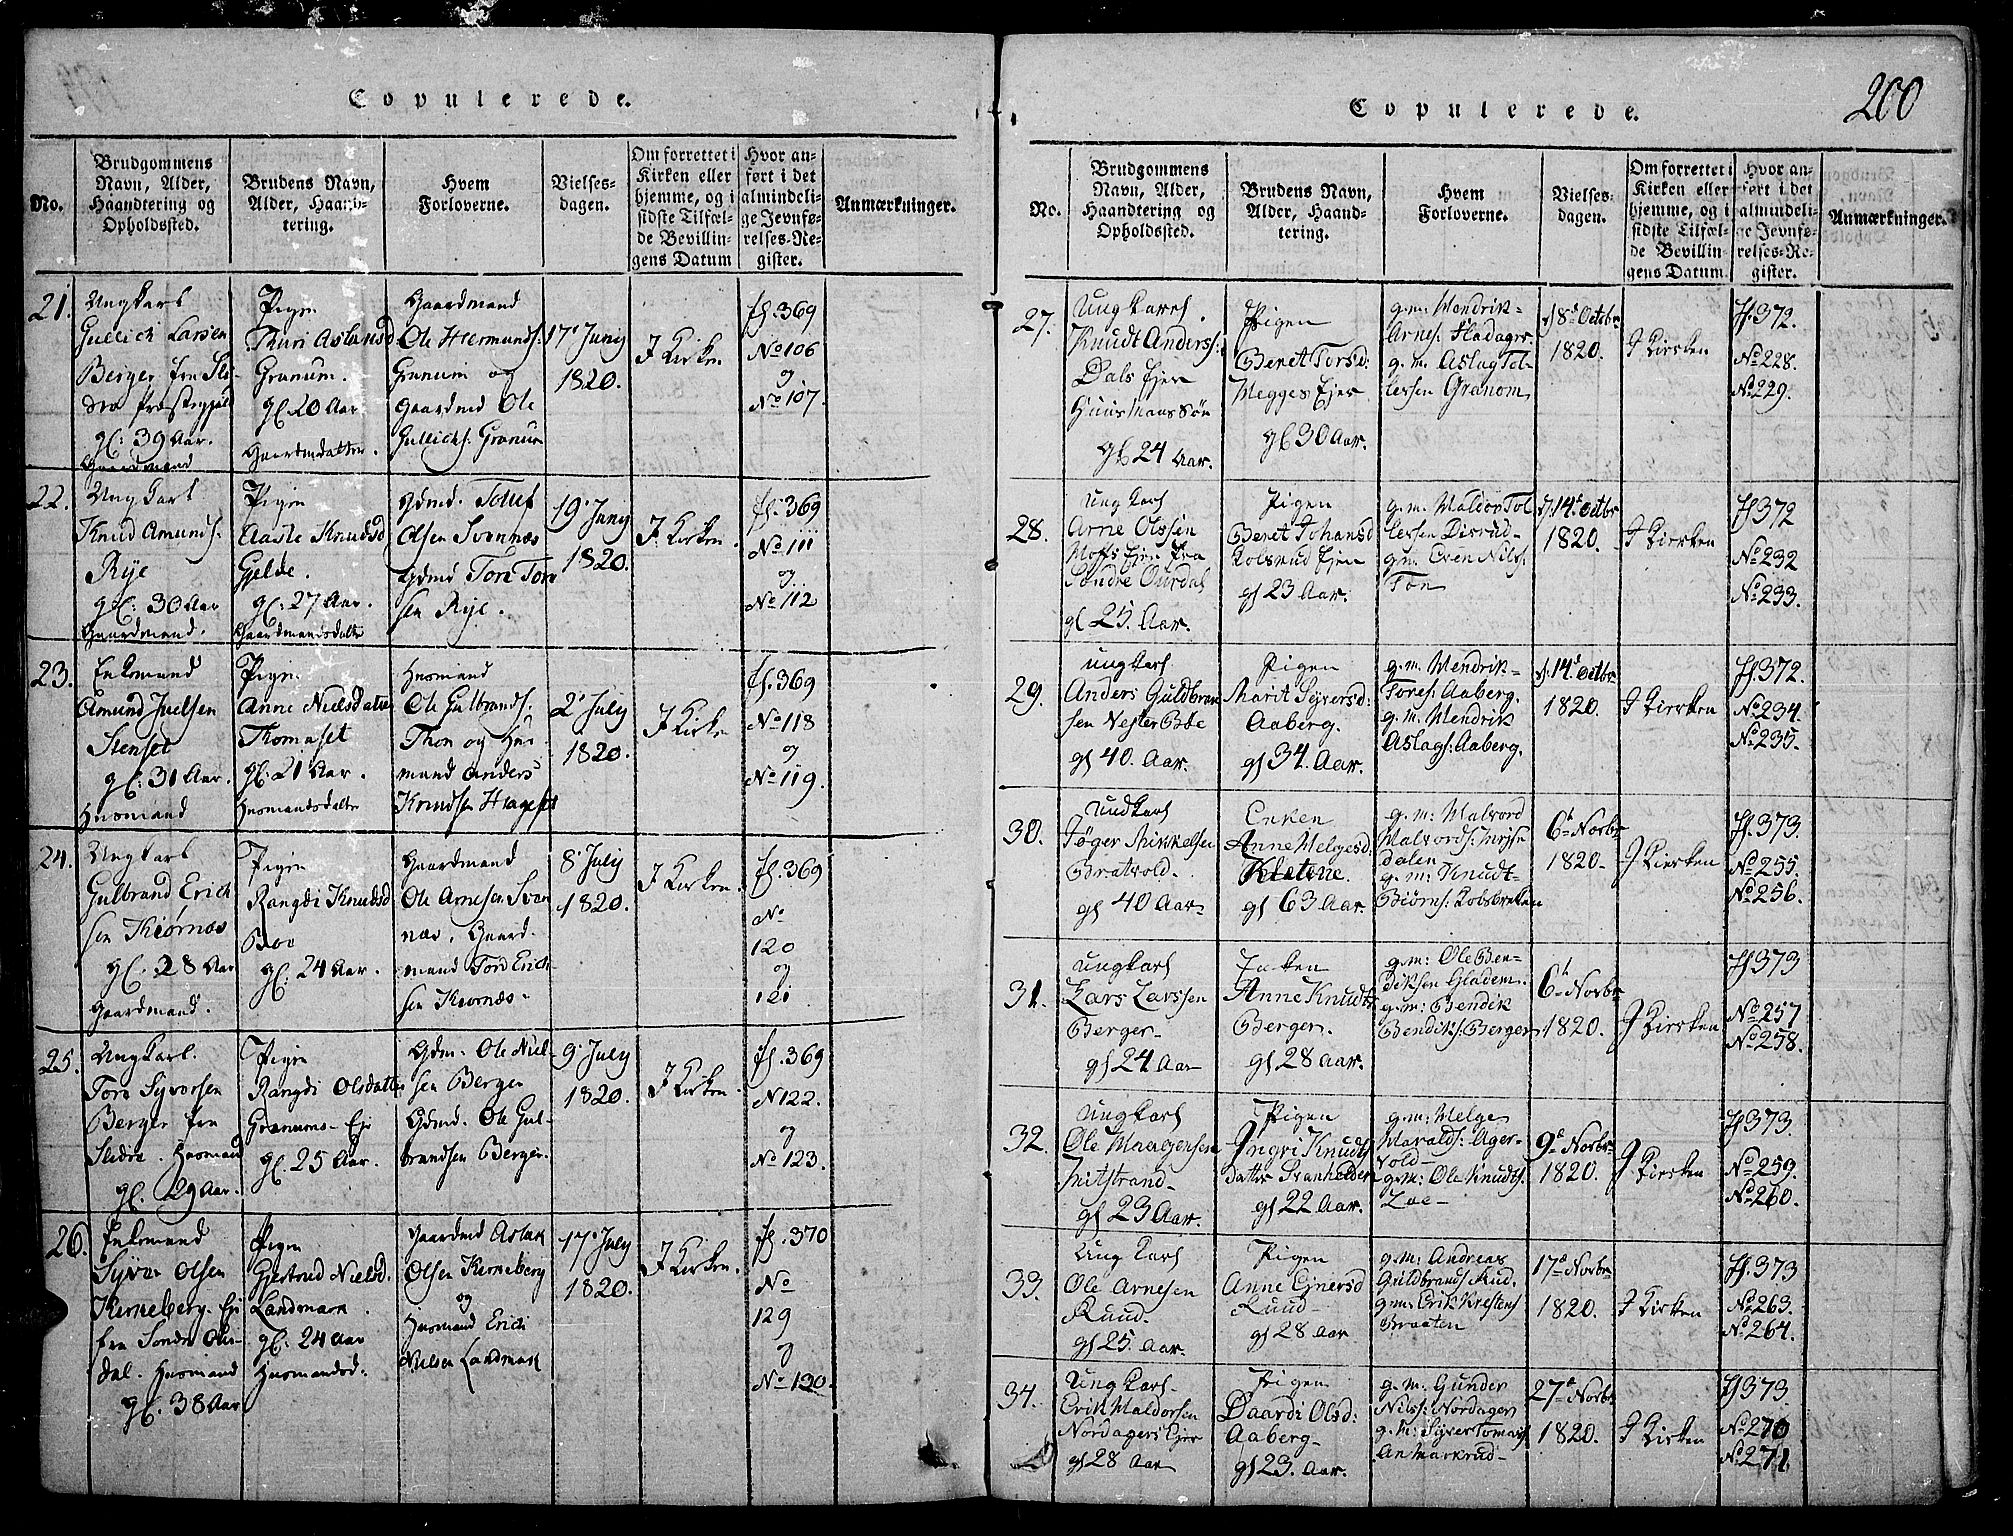 Copulerede.
No.
Brudgommens
Navn, Alder,
Haandtering og
Opholdssted.
Brudens Navn,
Alder, Haand-
tering.
Hvem
Forloverne.
Vielses-
dagen.
Om forrettet i
Kirken eller
hjemme, og i
sidste Tilfæl-
de Bevillin-
gens Datum
Hvor an-
ført i det
almindeli-
ge Jevnfø-
relses-Re-
gister.
Anmærkninger.
21.
Ungkarl
Gullich Larsen
Berger fra Sli-
dre Præstegjæld
gl: 39 Aar.
Gaardmand
Pigen
Thuri Aslansd
Granum.
gl 20 Aar
Gaardmdatter.
Gaardmand
Ole Hermunds:
Granum og
Gaardmd Ole
Gullichs: Granum
17 Juny
1820.
J Kirken
fl. 369
No 106
og
No 107.
22.
Ungkarl
Knud Amunds.
Rye
gl: 30 Aar
Gaardmand.
Pigen
Aaste Knudsd
Gjelde.
gl: 27 Aar.
Gaardmandsdatter
Gdmd. Tolef
Olsen Svennæs
Gdmd Tore Tore
sen Rye.
19 Juny
1820.
J Kirken.
fl. 369
No 111
og
No 112
23.
Enkemand
Amund Juelsen
Stenset
gl: 31 Aar.
Huusmand
Pigen
Anne Nielsdatter
Thomaset
gl: 21 Aar.
Husmandsdatter
Husmand
Ole Gulbrands.
Thon og Hus-
mand Anders
Knudsen Hagest
2 July
1820.
J Kirken
fl. 369
No 118
og
No 119.
24.
Ungkarl
Gulbrand Erich
sen Kiørnæs
gl. 28 Aar
Gaardmand.
Pigen
Rangdi Knudsd
Boe
gl: 24 Aar.
Gaardmand
Ole Arnesen Sven
næs. Gaard-
mand Tore Erich
sen Kiørnæs.
8 July
1820.
J Kirken.
fl. 369
No
120
og
121
25.
Ungkarl.
Tore Syversen
Berger fra
Slidre. Husmand
gl. 29 Aar.
Pigen
Rangdi Olsdatter
Granums Eje
gl. 25 Aar.
Gdm. Ole Niel-
sen Berger
Gdmd. Ole Gul-
brandsen Berger.
9 July
1820.
J Kirken.
fl. 369
N 122.
og
No 123.
26.
Enkemand
Syver Olsen
Kerneberg Eje
fra Sondre Our-
dal. Husmand
gl. 38 Aar
Pigen
Gjertrud Nielsd.
Landmark.
gl: 24 Aar
Husmandsd.
Gaardmd Aslak
Olsen Kerneberg
og
Husmand Erich
Nielsen Landmark
17 July
1820.
J Kirken.
fl. 370
No
129
og
No 130.
200
Copulerede.
No.
Brudgommens
Navn, Alder,
Haandtering og
Opholdssted.
Brudens Navn,
Alder, Haand-
tering.
Hvem
Forloverne.
Vielses-
dagen.
Om forrettet i
Kirken eller
hjemme, og i
sidste Tilfæl-
de Bevillin-
gens Datum.
Hvor an-
ført i det
almindeli-
ge Jevnfø-
relses-Re-
gister.
Anmærkninger.
27.
Ungkarl.
Knudt Anderss:
Dals Ejer
Huusmans Søn
gl 24 Aar.
Pigen
Beret Torsd:
Megges Ejer
gl 30 Aar.
g.m. Hendrik
Arnes: Hadager
g.m. Aslag Tol-
lersen Granom
d 8d Octbr
1820.
J Kierken
ff 372.
No 228.
No 229.
28.
Ungkarl
Arne Olssen
Hoffs Ejer fra
Søndre Ourdal
gl 25. Aar.
Pigen
Beret Johansd
Kolsrud Ejer
gl 23 Aar.
g.m. Haldor Tol
lersen Disrud
g.m. Even Nils:
Ton
d. 14d Octbr
1820.
J Kierken
ff 372
No 232
No 233.
29.
Ungkarl
Anders Guldbran
sen Vester Bøe
gl 40. Aar.
Pigen
Marit Syversd:
Aaberg.
gl 34. Aar.
g.m. Hendrik
Tores: Aaberg.
g.m. Hendrik
Aslags: Aaberg.
d. 14d Octbr
1820.
J Kierken
ff 372.
No 234.
No 235.
30.
Undkarl
Jøger Mikkelsen
Bratvold.
gl 40 Aar
Enken
Anne Helgesd:
Kletene.
gl 63 Aar.
g.m: Halvord
Halvords:
dalen
g.m: Knudt
Biørns: Kolsbrekken
6d Novbr
1820
J Kierken
ff. 373
No 255.
No 256.
31.
Ungkarl
Lars Larssen
Berger
gl 24 Aar
Enken
Anne Knudts
Berger.
gl 28 Aar.
g.m: Ole Ben-
diksen Gladem.
g.m: Bendik
Bendiks: Berger
6d Novbr
1820.
J Kierken
ff 373
No 257
No 258.
32.
Ungkarl
Ole Maagensen
Fritstrand
gl 23 Aar.
Pigen
Jngri Knudts
datter Svanhelden
gl 22 Aar.
g.m: Helge
Haralds: Ager-
vold
g.m: Ole Knudts.
Loe
9d Novbr
1820.
J Kierken
ff 373.
No 259.
No 260.
33.
Ung Karl
Ole Arnesen
Ruud
gl 25. Aar.
Pigen
Anne Ejnersd
Ruud
gl 28 Aar
g.m: Andreas
Guldbrands: Rud.
g.m: Erik Krestens
Braaten
17d Novbr
1820.
J Kirken
ff. 373
No 263.
No 264.
34.
Ung Karl.
Erik Haldorsen
Nordagers Ejer
gl 28 Aar
Pigen
Daardi Olsd:
Aaberg
gl 23. Aar.
g.m. Gunder
Nils: Nordager
g.m: Syver Tomas
sen Markrud
27d Novbr
1820.
J Kirken
ff 373.
No 270
No 271.